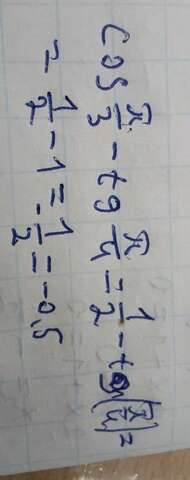 cos π/3 - tg π/4 = 1/2 - tg(π/4) =
= 1/2 - 1 = -1/2 = -0,5